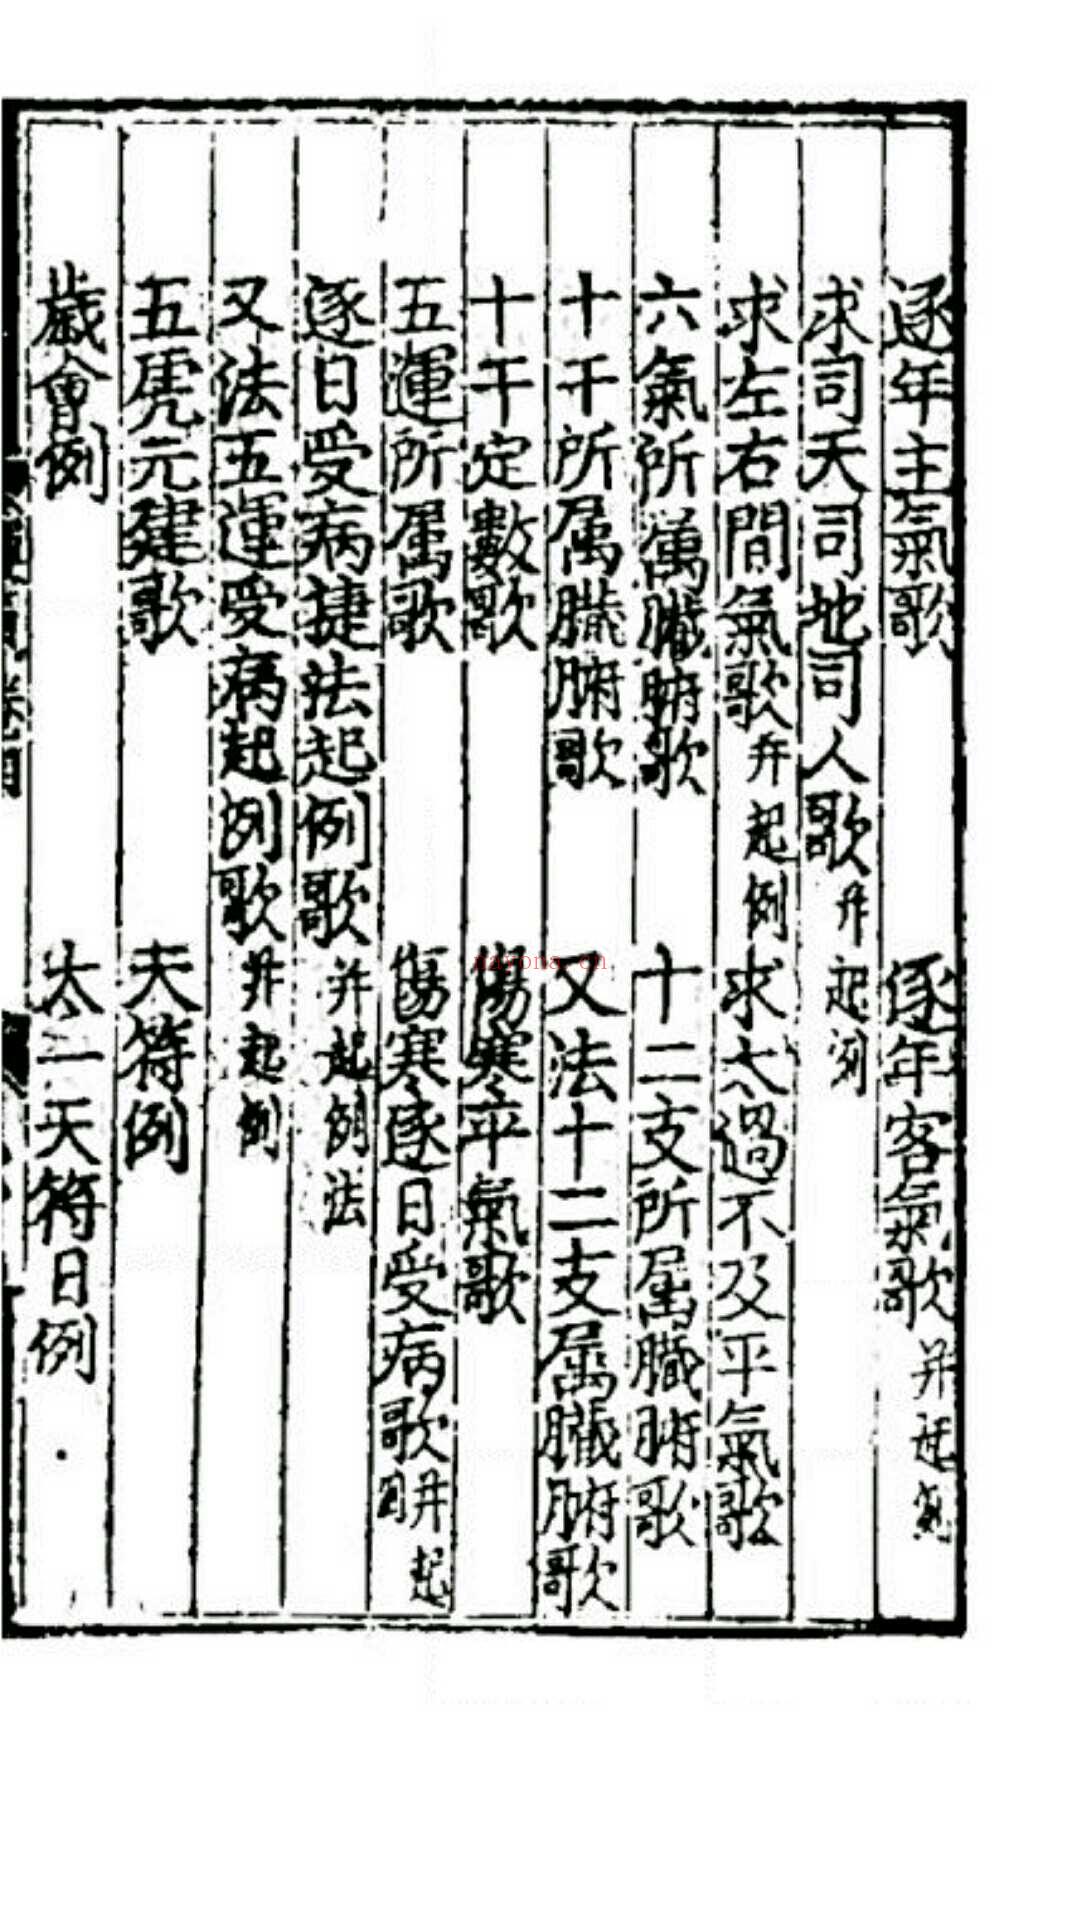 逐年主氣歌 逐年客氣歌 并起例
求司天司地司人歌 并起例
求左右間氣歌 并起例 求太過不及平氣歌
六氣所屬臟腑歌 十二支所屬臟腑歌
十干所属臟腑歌 又法十二支屬臟腑歌
十干定數歌 傷寒平氣歌
五運所属歌 傷寒逐日受病歌 并起
逐日受病捷法起例歌 并起例法
又法五運受病起例歌 并起例
五虎元建歌 天符例
歲會例 太一天符日例
nayona.cn